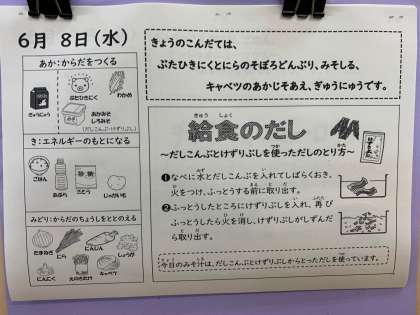 6月 8日(水)
きょうのこんだては、
ぶたひきにくとにらのそぼろどんぶり、みそしる、
キャベツのあかじそあえ、ぎゅうにゅうです。
あか:からだをつくる
ぎゅうにゅう
ぶたひきにく
わかめ
あかみそ
しろみそ
(だしこんぶ・けずりぶし)
き:エネルギーのもとになる
ごはん
あぶら
さとう
じゃがいも
みどり:からだのちょうしをととのえる
たまねぎ
にら
にんじん
しょうが
にんにく
えのきたけ
キャベツ
きゅう しょく
給食のだし
～だしこんぶとけずりぶしを使っただしのとり方～
❶なべに水とだしこんぶを入れてしばらくおき、
火をつけ、ふっとうする前に取り出す。
❷ふっとうしたところにけずりぶしを入れ、再び
ふっとうしたら火を消し、けずりぶしがしずんだ
ら取り出す。
今日のみそ汁は、だしこんぶとけずりぶしからとっただしを使っています。